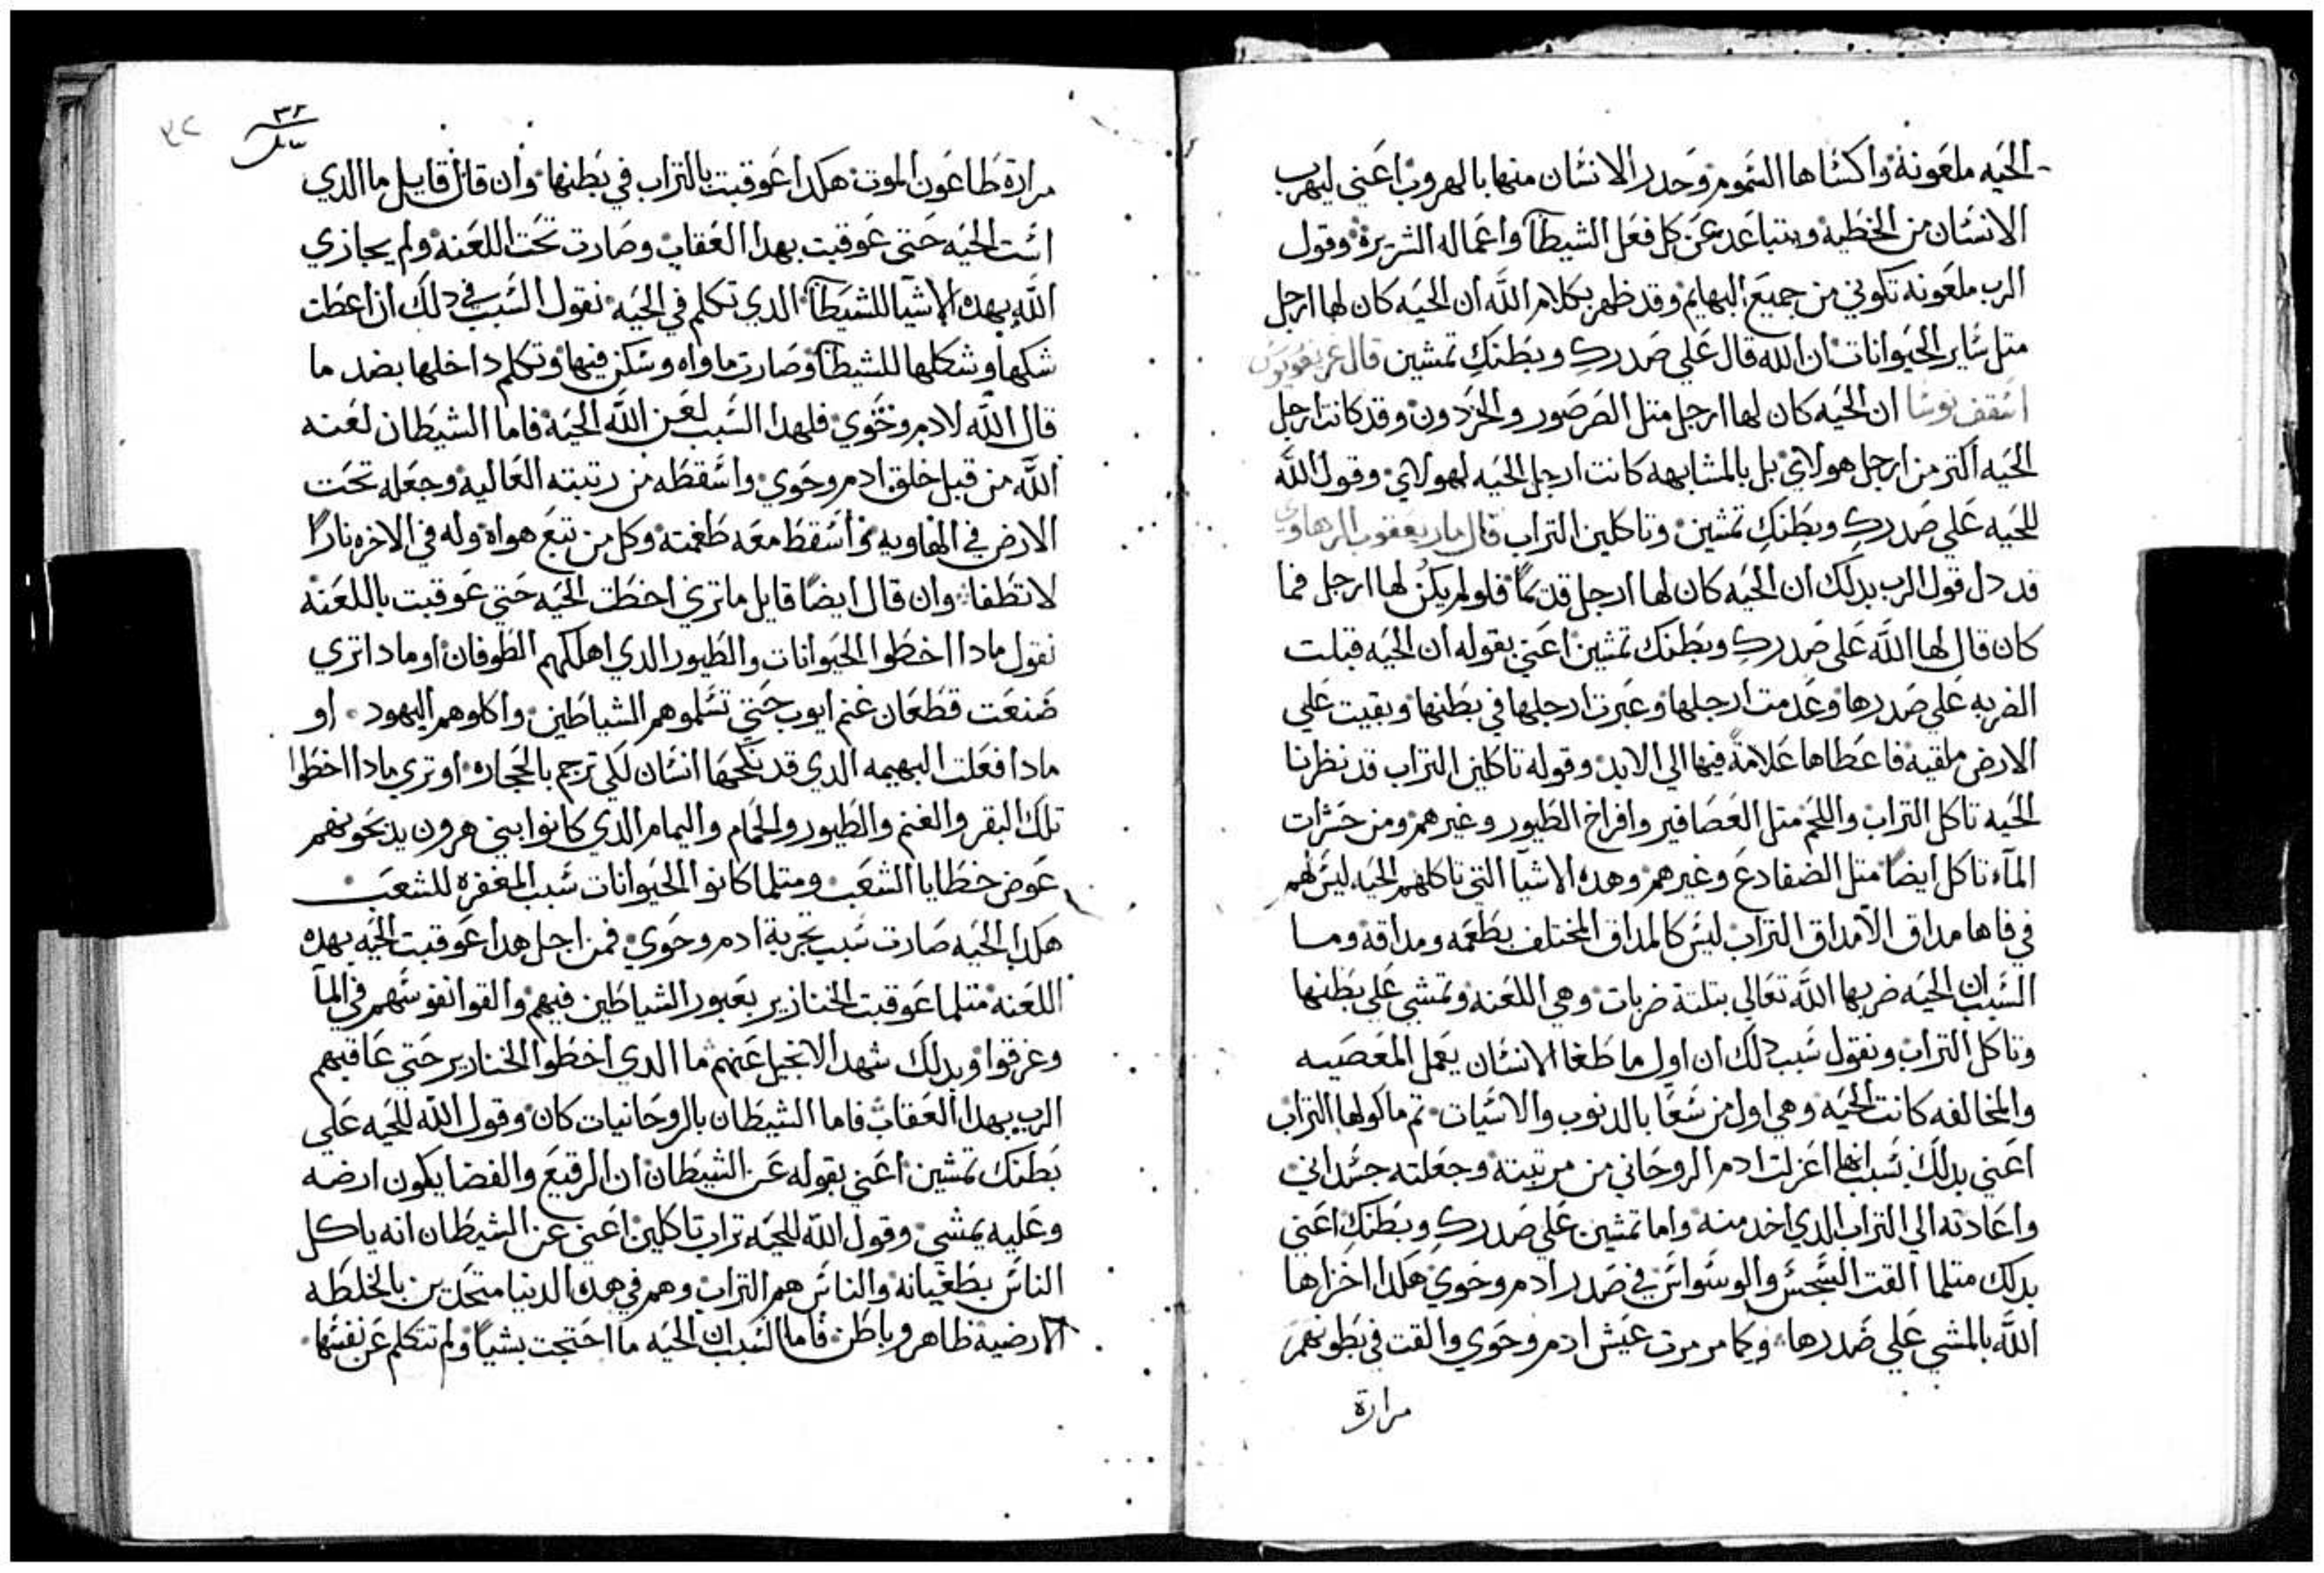 الحيه ملعونة واكساها السموم وحدر الانسان منها بالهروب اعني ليهرب
الانسان من الخطيه ويتباعد عن كل فعل الشيطان واعماله الشريرة وقول
الرب ملعونه تكوني من جميع البهايم وقد ظهر بكلام الله ان الحيه كان لها ارجل
متل ساير الحيوانات ان الله قال علي صدرك وبطنك تمشين قال غريغوريوس
اسقف نوسا ان الحيه كان لها ارجل متل الصرصور والحردون وقد كانت ارجل
الحيه اكتر من ارجل هولاي بل بالمشابهه كانت ارجل الحيه لهولاي وقول الله
للحيه علي صدرك وبطنك تمشين وتاكلين التراب قال مار يعقوب الرهاوي
قد دل قول الرب بدلك ان الحيه كان لها ارجل قديما فلو لم يكن لها ارجل فما
كان قال لها الله علي صدرك وبطنك تمشين اعني بقوله ان الحيه قبلت
الضربه علي صدرها وعدمت ارجلها وعبرت ارجلها في بطنها وبقيت علي
الارض ملقيه فاعطاها علامة فيها الي الابد وقوله تاكلين التراب قد نظرنا
الحيه تاكل التراب واللحم متل العصافير وافراخ الطيور وغيرهم ومن حشرات
المآء تاكل ايضا متل الضفادع وغيرهم وهده الاشيا التي تاكلهم الحيه ليس لهم
في فاها مداق الا مداق التراب ليس كالمداق المختلف بطعمه ومداقه وما
السبب ان الحيه ضربها الله تعالي بتلتة ضربات وهي اللعنه وتمشي علي بطنها
وتاكل التراب ونقول سبب دلك ان اول ما طغا الانسان يعمل المعصيه
والمخالفه كانت الحيه وهي اول من سعا بالدنوب والاسيات تم ماكولها التراب
اعني بدلك بسبب انها اعزلت ادم الروحاني من مرتبته وجعلته جسداني
واعادته الي التراب الدي اخد منه واما تمشين علي صدرك وبطنك اعني
بدلك متلما القت السجس والوسواس في صدر ادم وحوي هكدا اخزاها
الله بالمشي علي صدرها وكما مرمرت عيش ادم وحوي والقت في بطونهم
مرارة
٣٢
مرارة طاعون الموت هكدا عوقبت بالتراب في بطنها وان قال قايل ما الدي
است الحيه حتي عوقبت بهدا العقاب وصارت تحت اللعنه ولم يجازي
الله بهده الاشيا للشيطان الدي تكلم في الحيه نقول السبب في دلك ان اعطت
شكها وشكلها للشيطان وصارت ماواه وسكن فيها وتكلم داخلها بضد ما
قال الله لادم وحوي فلهدا السبب لعن الله الحيه فاما الشيطان لعنه
الله من قبل خلق ادم وحوي واسقطه من رتبته العاليه وجعله تحت
الارض في الهاويه واسقط معه طغمته وكل من تبع هواه وله في الاخره نارا
لا تطفا وان قال ايضا قايل ماتري اخطت الحيه حتي عوقبت باللعنه
نقول مادا اخطوا الحيوانات والطيور الدي اهلكهم الطوفان او مادا تري
ضنعت قطعان غنم ايوب حتي تسلموهم الشياطين واكلوهم اليهود او
مادا فعلت البهيمه الدي قد ينكحها انسان لكي ترجم بالحجاره او تري مادا اخطوا
تلك البقر والغنم والطيور والحمام واليمام الدي كانوا بني هرون يدبحونهم
عوض خطايا الشعب ومتلما كانوا الحيوانات سبب المغفره للشعب
هكدا الحيه صارت سبب تجربة ادم وحوي فمن اجل هدا عوقبت الحيه بهده
اللعنه متلما عوقبت الخنازير بعبور الشياطين فيهم والقوا نفوسهم في المآ
وغرقوا وبدلك شهد الانجيل عنهم ما الدي اخطوا الخنازير حتي عاقبهم
الرب بهدا العقاب فاما الشيطان بالروحانيات كان وقول الله للحيه علي
بطنك تمشين اعني بقوله عن الشيطان ان الرقيع والفضا يكون ارضه
وعليه يمشي وقول الله للحيه تراب تاكلين اعني عن الشيطان انه ياكل
الناس بطغيانه والناس هم التراب وهم في هده الدنيا متحدين بالخلطه
الارضيه ظاهر وباطن فاما السبب ان الحيه ما احتجت بشيا ولم تتكلم عن نفسها